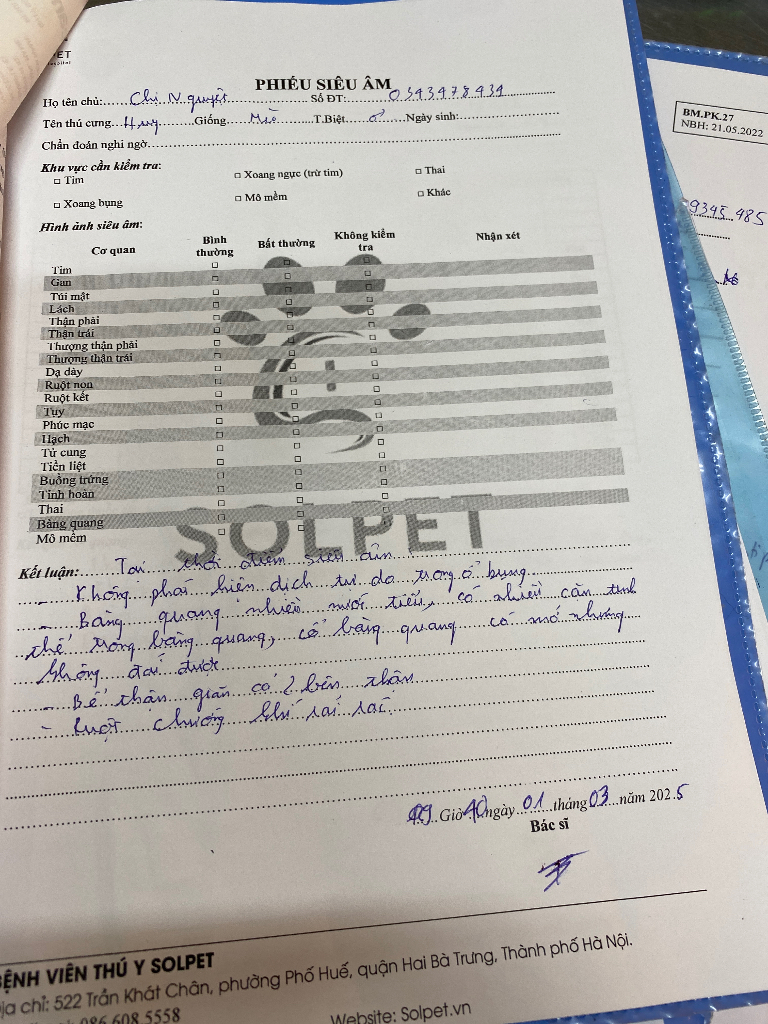 PET
BM.PK.27
NBH: 21.05.2022
PHIẾU SIÊU ÂM
Họ tên chủ: Chị Nguyệt Số ĐT: 0343478434
Tên thú cưng Giống Mèo T.Biệt ♂ Ngày sinh:
Chẩn đoán nghi ngờ
9345 485
Khu vực cần kiểm tra:
□ Tim □ Xoang ngực (trừ tim) □ Thai
□ Xoang bụng □ Mô mềm □ Khác
Hình ảnh siêu âm:
Cơ quan Bình thường Bất thường Không kiểm tra Nhận xét
Tim □ □ □
Gan □ □ □
Túi mật □ □ □
Lách □ □ □
Thận phải □ □ □
Thận trái □ □ □
Thượng thận phải □ □ □
Thượng thận trái □ □ □
Dạ dày □ □ □
Ruột non □ □ □
Ruột kết □ □ □
Tụy □ □ □
Phúc mạc □ □ □
Hạch □ □ □
Tử cung □ □ □
Tiền liệt □ □ □
Buồng trứng □ □ □
Tinh hoàn □ □ □
Thai □ □ □
Bàng quang □ □ □
Mô mềm □ □ □
SOLPET
Kết luận: Tại thời điểm siêu âm
- Không phát hiện dịch tự do trong ổ bụng
- Bàng quang nhiều nước tiểu, có nhiều cặn tinh
thể trong bàng quang, cổ bàng quang có mở nhưng
không đái được
- Bể thận giãn cả 2 bên thận
- Ruột chướng khí rải rác
Giờ 40 ngày 01 tháng 03 năm 2025
Bác sĩ
BỆNH VIÊN THÚ Y SOLPET
Địa chỉ: 522 Trần Khát Chân, phường Phố Huế, quận Hai Bà Trưng, Thành phố Hà Nội.
086 608 5558 Website: Solpet.vn